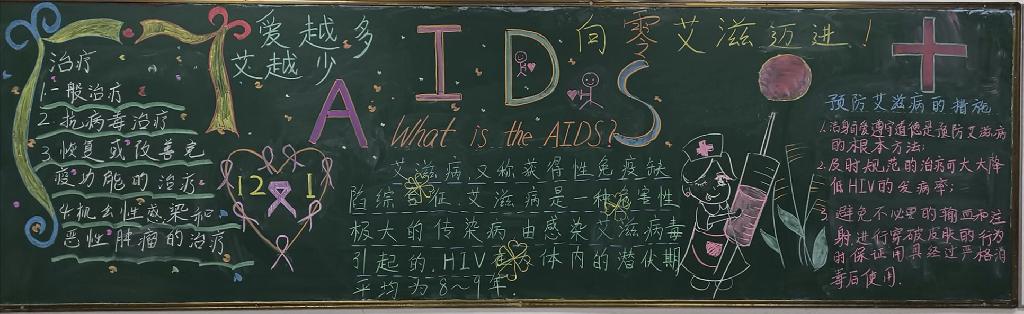 治疗
1.一般治疗
2.抗病毒治疗
3.恢复或改善免
疫功能的治疗
4.机会性感染和
恶性肿瘤的治疗
爱越多
艾越少
12 1
AIDS
向零艾滋迈进!
What is the AIDS?
艾滋病,又称获得性免疫缺
陷综合征.艾滋病是一种危害性
极大的传染病,由感染艾滋病毒
引起的.HIV在人体内的潜伏期
平均为8~9年.
预防艾滋病的措施
1.洁身自爱遵守道德是预防艾滋病
的根本方法;
2.及时规范的治疗可大大降
低HIV的发病率;
3.避免不必要的输血和注
射,进行穿破皮肤的行为
时保证用具经过严格消
毒后使用.